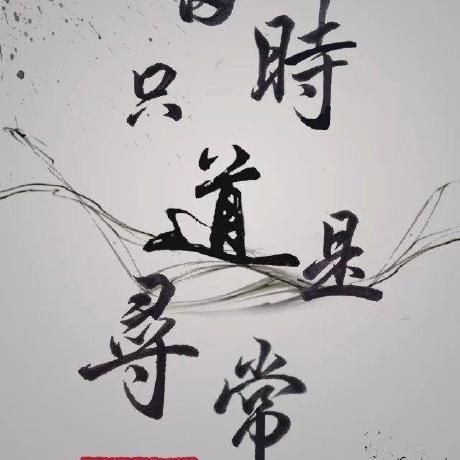 時只道是尋常